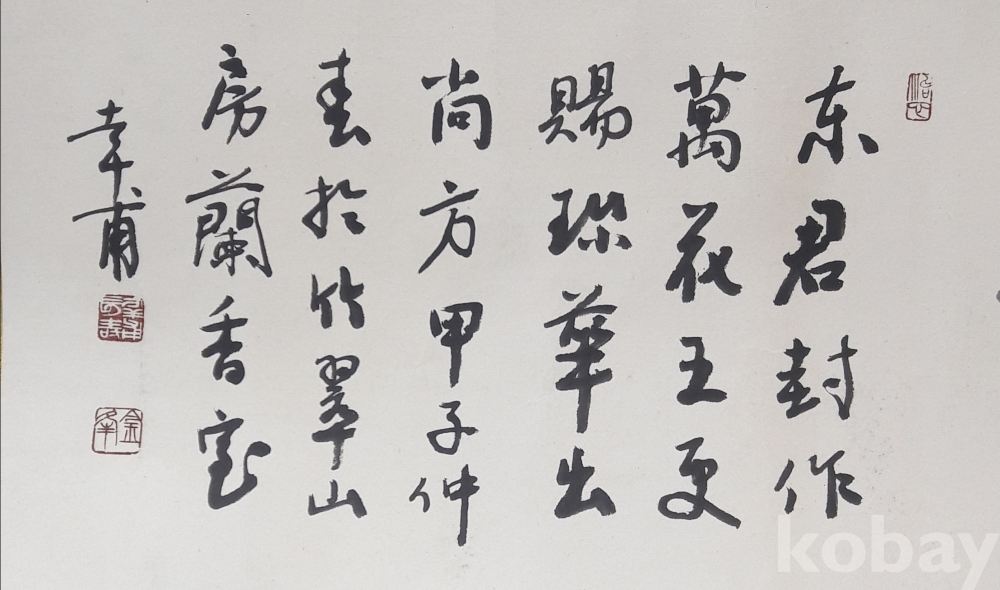 东君封作
萬花王更
賜珎華出
尚方甲子仲
春於竹翠山
房蘭香室
幸甫
kobay